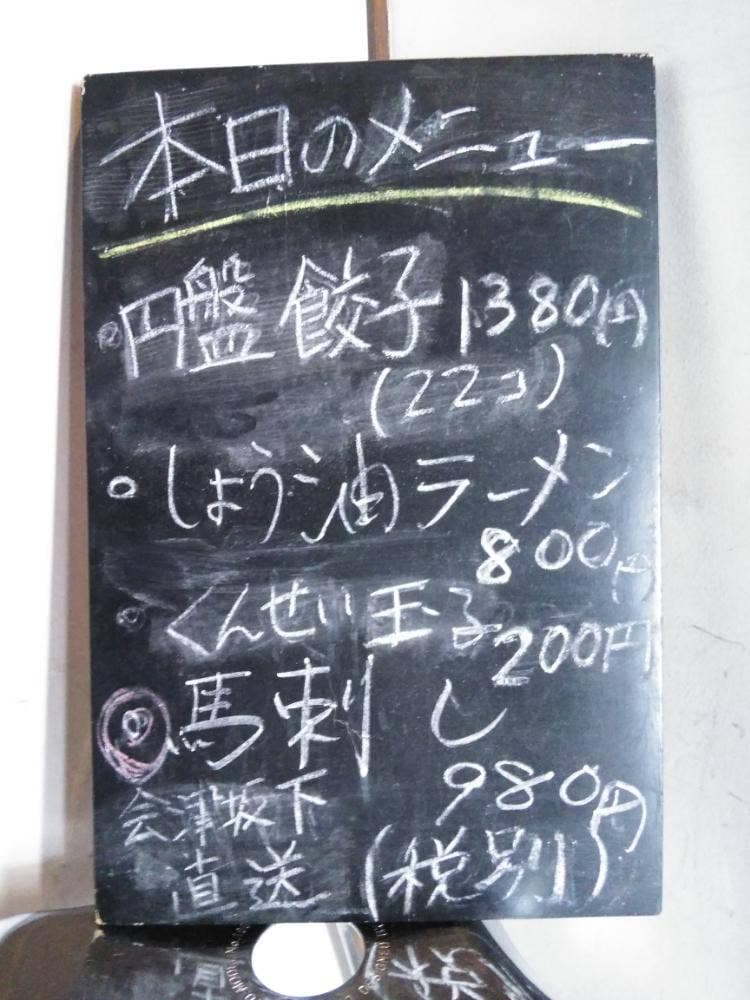 本日のメニュー
円盤餃子 1380円
(22コ)
しょう油ラーメン
800円
くんせい玉子
200円
馬刺し
980円
会津坂下
直送 (税別)